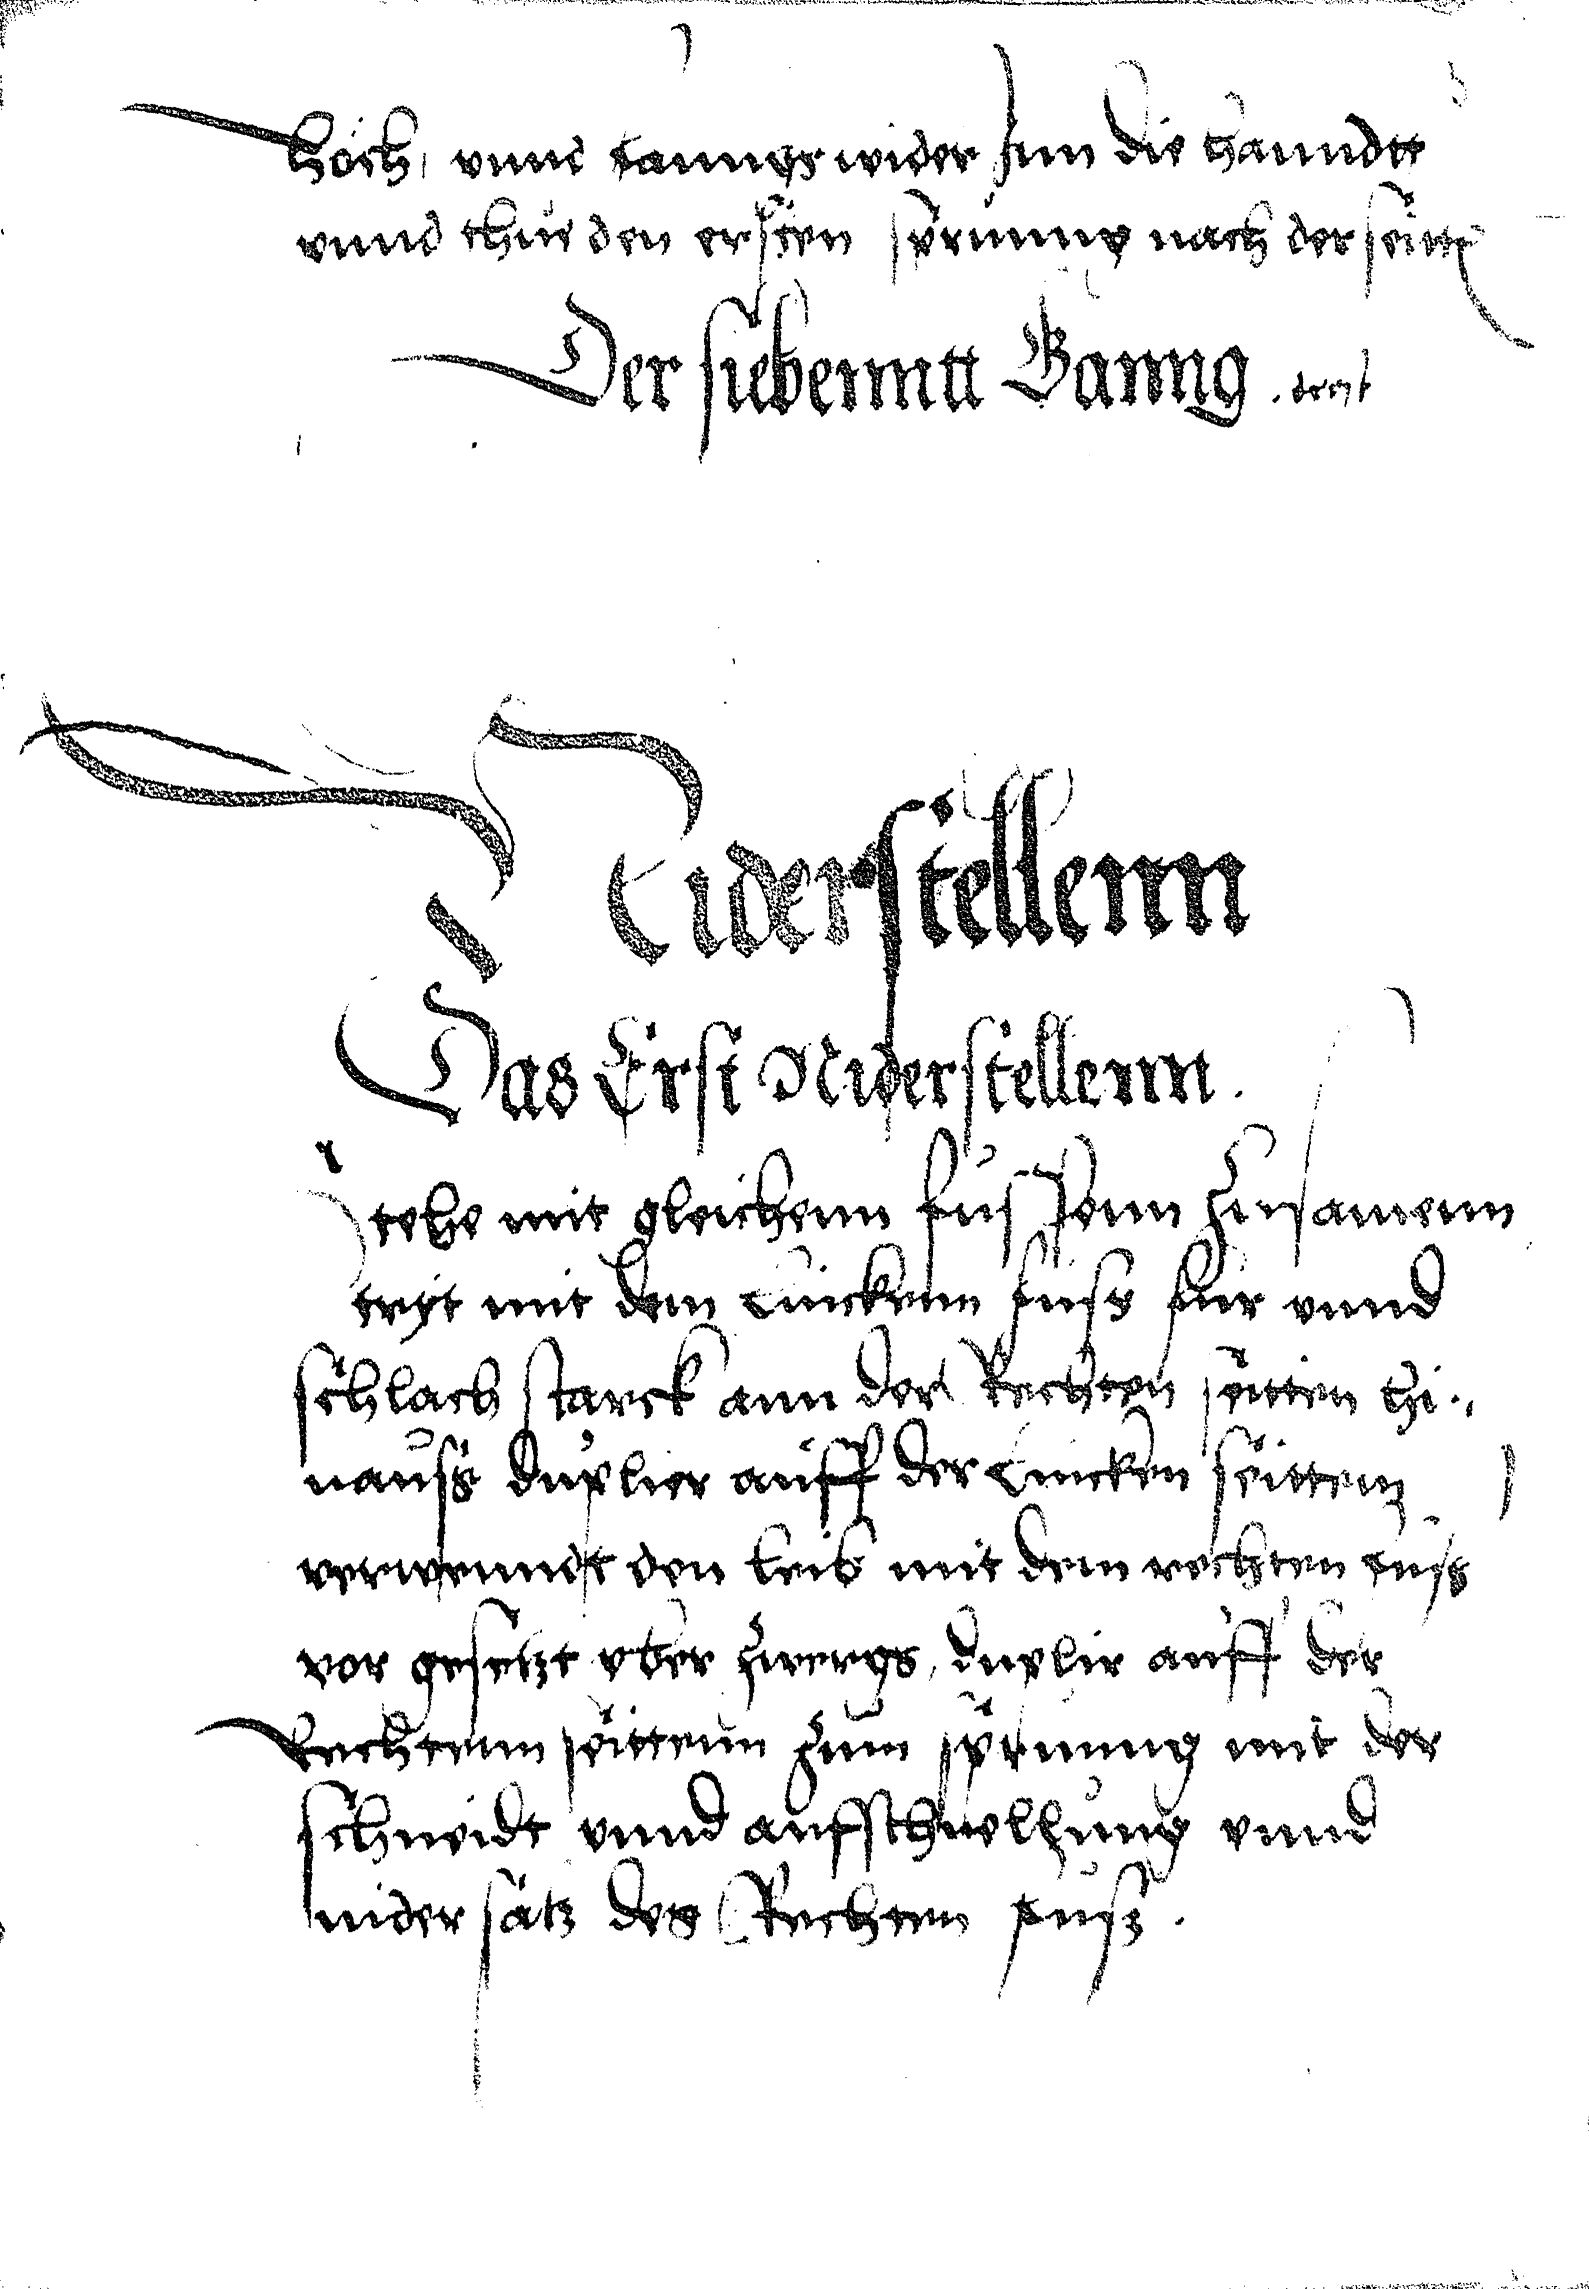 hoch, vnnd fanngs wider inn die hanndtt
vnnd thue den ersten sprunng nach der seitt
Der siebenntt Ganng.
Niderstellenn
Das Erst Niderstellenn.
Stehe mit gleichenn füssenn zusamenn
tryt mit dem Linckenn fuss für vnnd
schlach starck ann der Rechten seitten hi-
nauss duplier auff der Lincken seitten
verwenndt den leib mit dem rechten fuss
vor gesetzt vber zwergs, duplir auff der
Rechtenn seittenn zum sprunng mit der
schneidt vnnd aufschwellung vnnd
nidersatz des Rechten fuss.